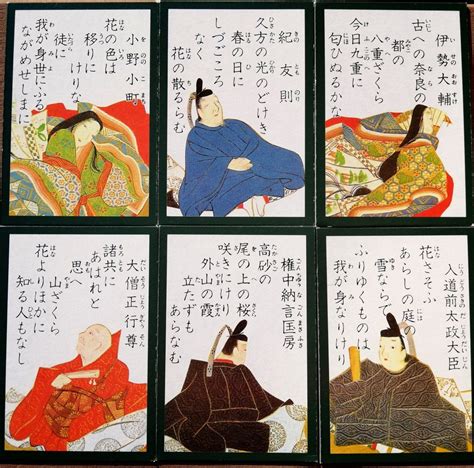 伊勢大輔
古への奈良の
都の
八重ざくら
今日九重に
匂ひぬるかな
紀友則
久方の光のどけき
春の日に
しづごころ
なく
花の散るらむ
小野小町
花の色は
移りにけりな
徒に
我が身世にふる
ながめせしまに
道前太政大臣
花さそふ
あらしの庭の
雪ならで
ふりゆくものは
我が身なりけり
権中納言匡房
高砂の
尾の上の桜
咲きにけり
外山の霞
立たずも
あらなむ
大僧正行尊
諸共に
あはれと
思へ
山ざくら
花よりほかに
知る人もなし